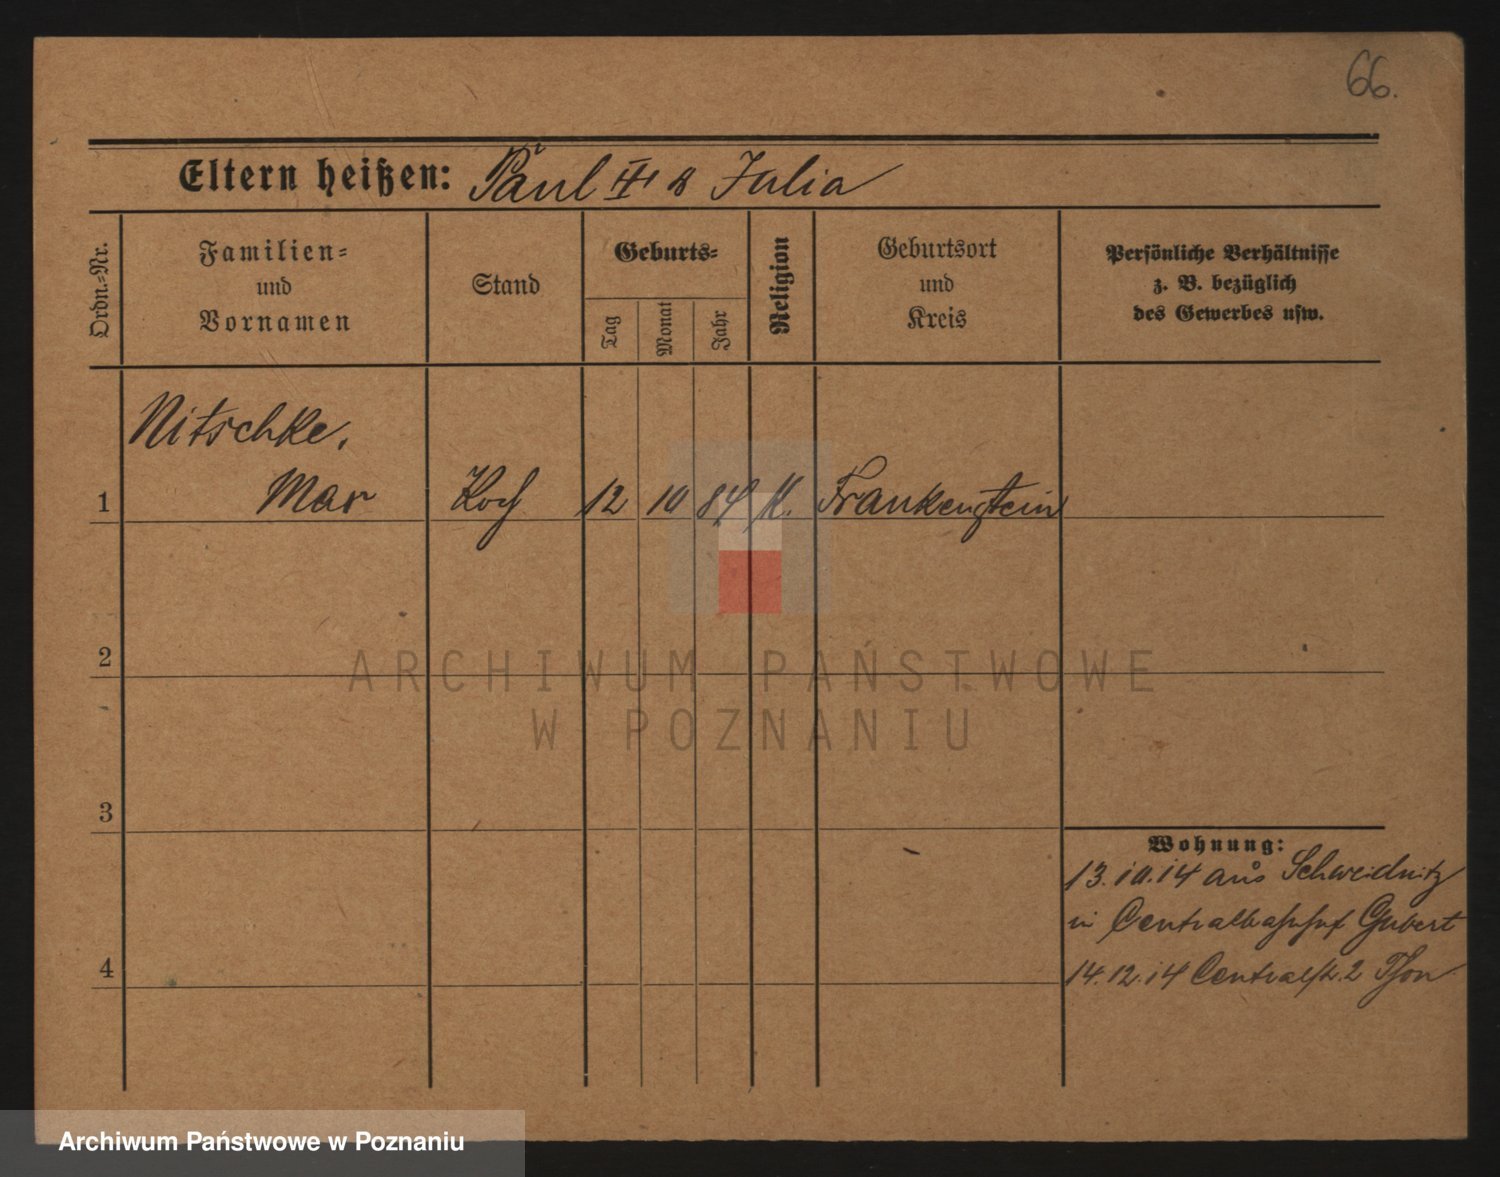 66.
Eltern heißen: Paul III & Julia
Ordn.-Nr.
Familien-
und
Vornamen
Stand
Geburts-
Tag
Monat
Jahr
Religion
Geburtsort
und
Kreis
Persönliche Verhältnisse
z. B. bezüglich
des Gewerbes usw.
Nitschke,
1 Max Koch 12 10 84 K. Frankenstein
2
ARCHIWUM PAŃSTWOWE
W POZNANIU
3
Wohnung:
13.10.14 aus Schweidnitz
in Centralbahnhof
4
14.12.14 Centralstr. 2
Archiwum Państwowe w Poznaniu